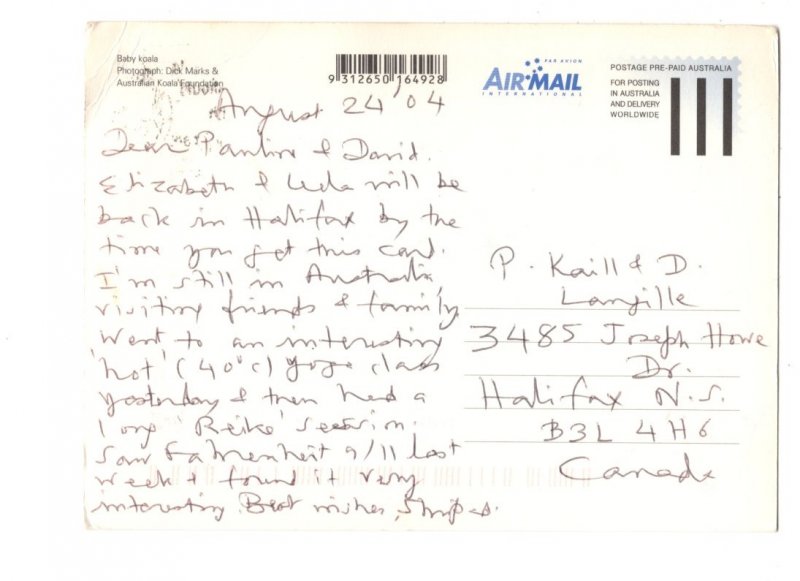 Baby koala
Photograph: Dick Marks &
Australian Koala Foundation
9 312650 164928
PAR AVION
AIR MAIL
INTERNATIONAL
POSTAGE PRE-PAID AUSTRALIA
FOR POSTING
IN AUSTRALIA
AND DELIVERY
WORLDWIDE
August 24 '04
Dear Pauline & David.
Elizabeth & Leela will be
back in Halifax by the
time you get this card.
I'm still in Australia,
visiting friends & family.
Went to an interesting
'hot' (40°C) yoga class
yesterday & then had a
long 'Reike' session.
Saw Fahrenheit 9/11 last
week & found it very
interesting. Best wishes,
P. Kaill & D.
Langille
3485 Joseph Howe
Dr.
Halifax N.S.
B3L 4H6
Canada